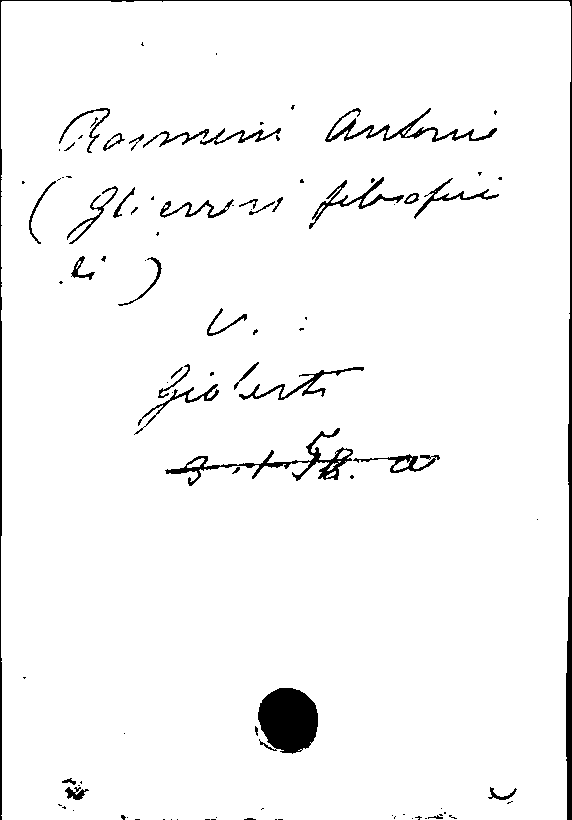 Rosmini Antonio
(Gli errori filosofici
di)
V. :
Gioberti